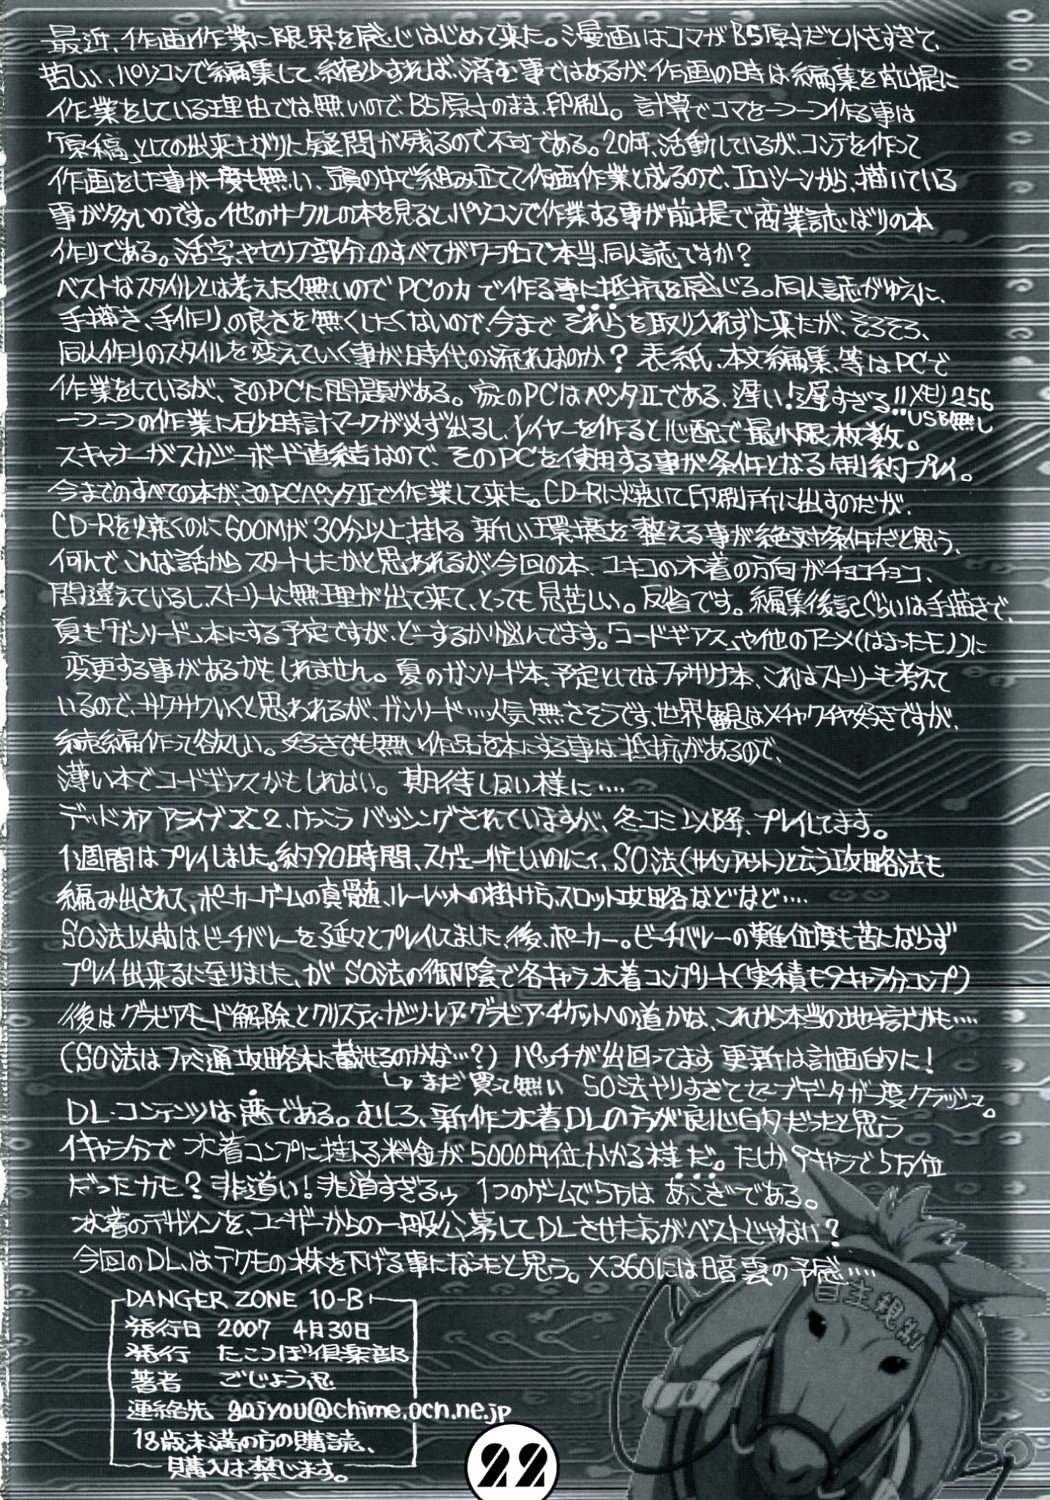 最近、作画作業に限界を感じはじめて来た。漫画はコマがB5原寸だと小さすぎて、
苦しい、パソコンで編集して、縮小すれば、済む事ではあるが、作画の時は編集を前提に
作業をしている理由では無いので、B5原寸のまま、印刷。計算でコマを一つ一つ作る事は
「原稿」としての出来上がりに疑問が残るので不可である。20年、活動しているが、コンテを作って
作画をした事が一度も無い、頭の中で組み立てて作画作業と成るので、エロシーンから、描いている
事が多いのです。他のサークルの本を見ると、パソコンで作業する事が前提で商業誌ばりの本
作りである。活字やセリフ部分のすべてがワープロで本当、同人誌ですか?
ベストなスタイルとは考えたく無いのでPCの力で作る事に抵抗を感じる。同人誌がゆえに、
手描き、手作り、の良さを無くしたくないので、今までそれらを取り入れずに来たが、そろそろ、
同人作りのスタイルを変えていく事が時代の流れなのか?表紙、本文編集、等はPCで
作業をしているが、そのPCに問題がある。家のPCはペンタⅡである、遅い!遅すぎる!!メモリ256
USB無し
一つ一つの作業に砂時計マークが必ず出るし、レイヤーを作ると心配で最小限枚数。
スキャナーがスカジーボード直結なので、そのPCを使用する事が条件となる制約プレイ。
今までのすべての本が、このPCペンタⅡで作業して来た。CD-Rに焼いて印刷所に出すのだが、
CD-Rを焼くのに600Mが30分以上掛る 新しい環境を整える事が絶対条件だと思う、
何んで、こんな話からスタートしたかと思われるが今回の本、ユキコの水着の方向がチョコチョコ、
間違えているし、ストーリーに無理が出て来て、とっても見苦しい。反省です。編集後記ぐらいは手描きで、
夏も「ガンソード」本にする予定ですが、どーするか悩んでます。「コードギアス」や他のアニメ(はまったモノ)に
変更する事があるかもしれません。夏のガンソード本、予定としてはファサリナ本、これはストーリーも考えて
いるので、サクサクいくと思われるが、ガンソード…人気、無さそうです、世界観はメチャクチャ好きですが、
続編作って欲しい。好きでも無い作品を本にする事は抵抗があるので、
薄い本でコードギアスかもしれない。期待しない様に‥‥
デッド オア アライブX2、けっこうバッシングされていますが、冬コミ以降、プレイしてます。
1週間はプレイしました。約90時間、スゲェー忙しいのにィ、SO法(サインアウト)と云う攻略法も
編み出されて、ポーカーゲームの真髄、ルーレットの掛けら、スロット攻略などなど‥‥
SO法以前はビーチバレーを延々とプレイしてました、後、ポーカー。ビーチバレーの難位度も苦にならず
プレイ出来るに至りました、が SO法の御陰で各キャラ、水着コンプリート(実積も9キャラ分コンプ)
後はグラビアモード解除とクリスティ・ガッツ・レア・グラビア・チケットへの道かな、これから本当の地獄かも‥‥
(SO法はファミ通攻略本に載せるのかな…?) パッチが出回ってます 更新は計画的に!
↳まだ買って無い SO法やりすぎてセーブデータが一度クラッシュ。
DL・コンテンツは悪である。むしろ、新作水着、DLの方が良心的だったと思う
1キャラ分で 水着コンプに掛る料金が5000円位かかる様だ。たしか9キャラで5万位
だったカモ?非道い!非道すぎるッ 1つのゲームで5万はあこぎである。
水着のデザインを、ユーザーからの一般公募してDLさせた方がベストじゃない?
今回のDLはテクモの株を下げる事になったと思う。X360には暗雲の予感‥‥
自主規制
DANGER ZONE 10-B
発行日 2007 4月30日
発行 たこつぼ倶楽部
著者 ごじょう忍
連絡先 gojyou@chime.ocn.ne.jp
18歳未満の方の購読、
購入は禁じます。
22